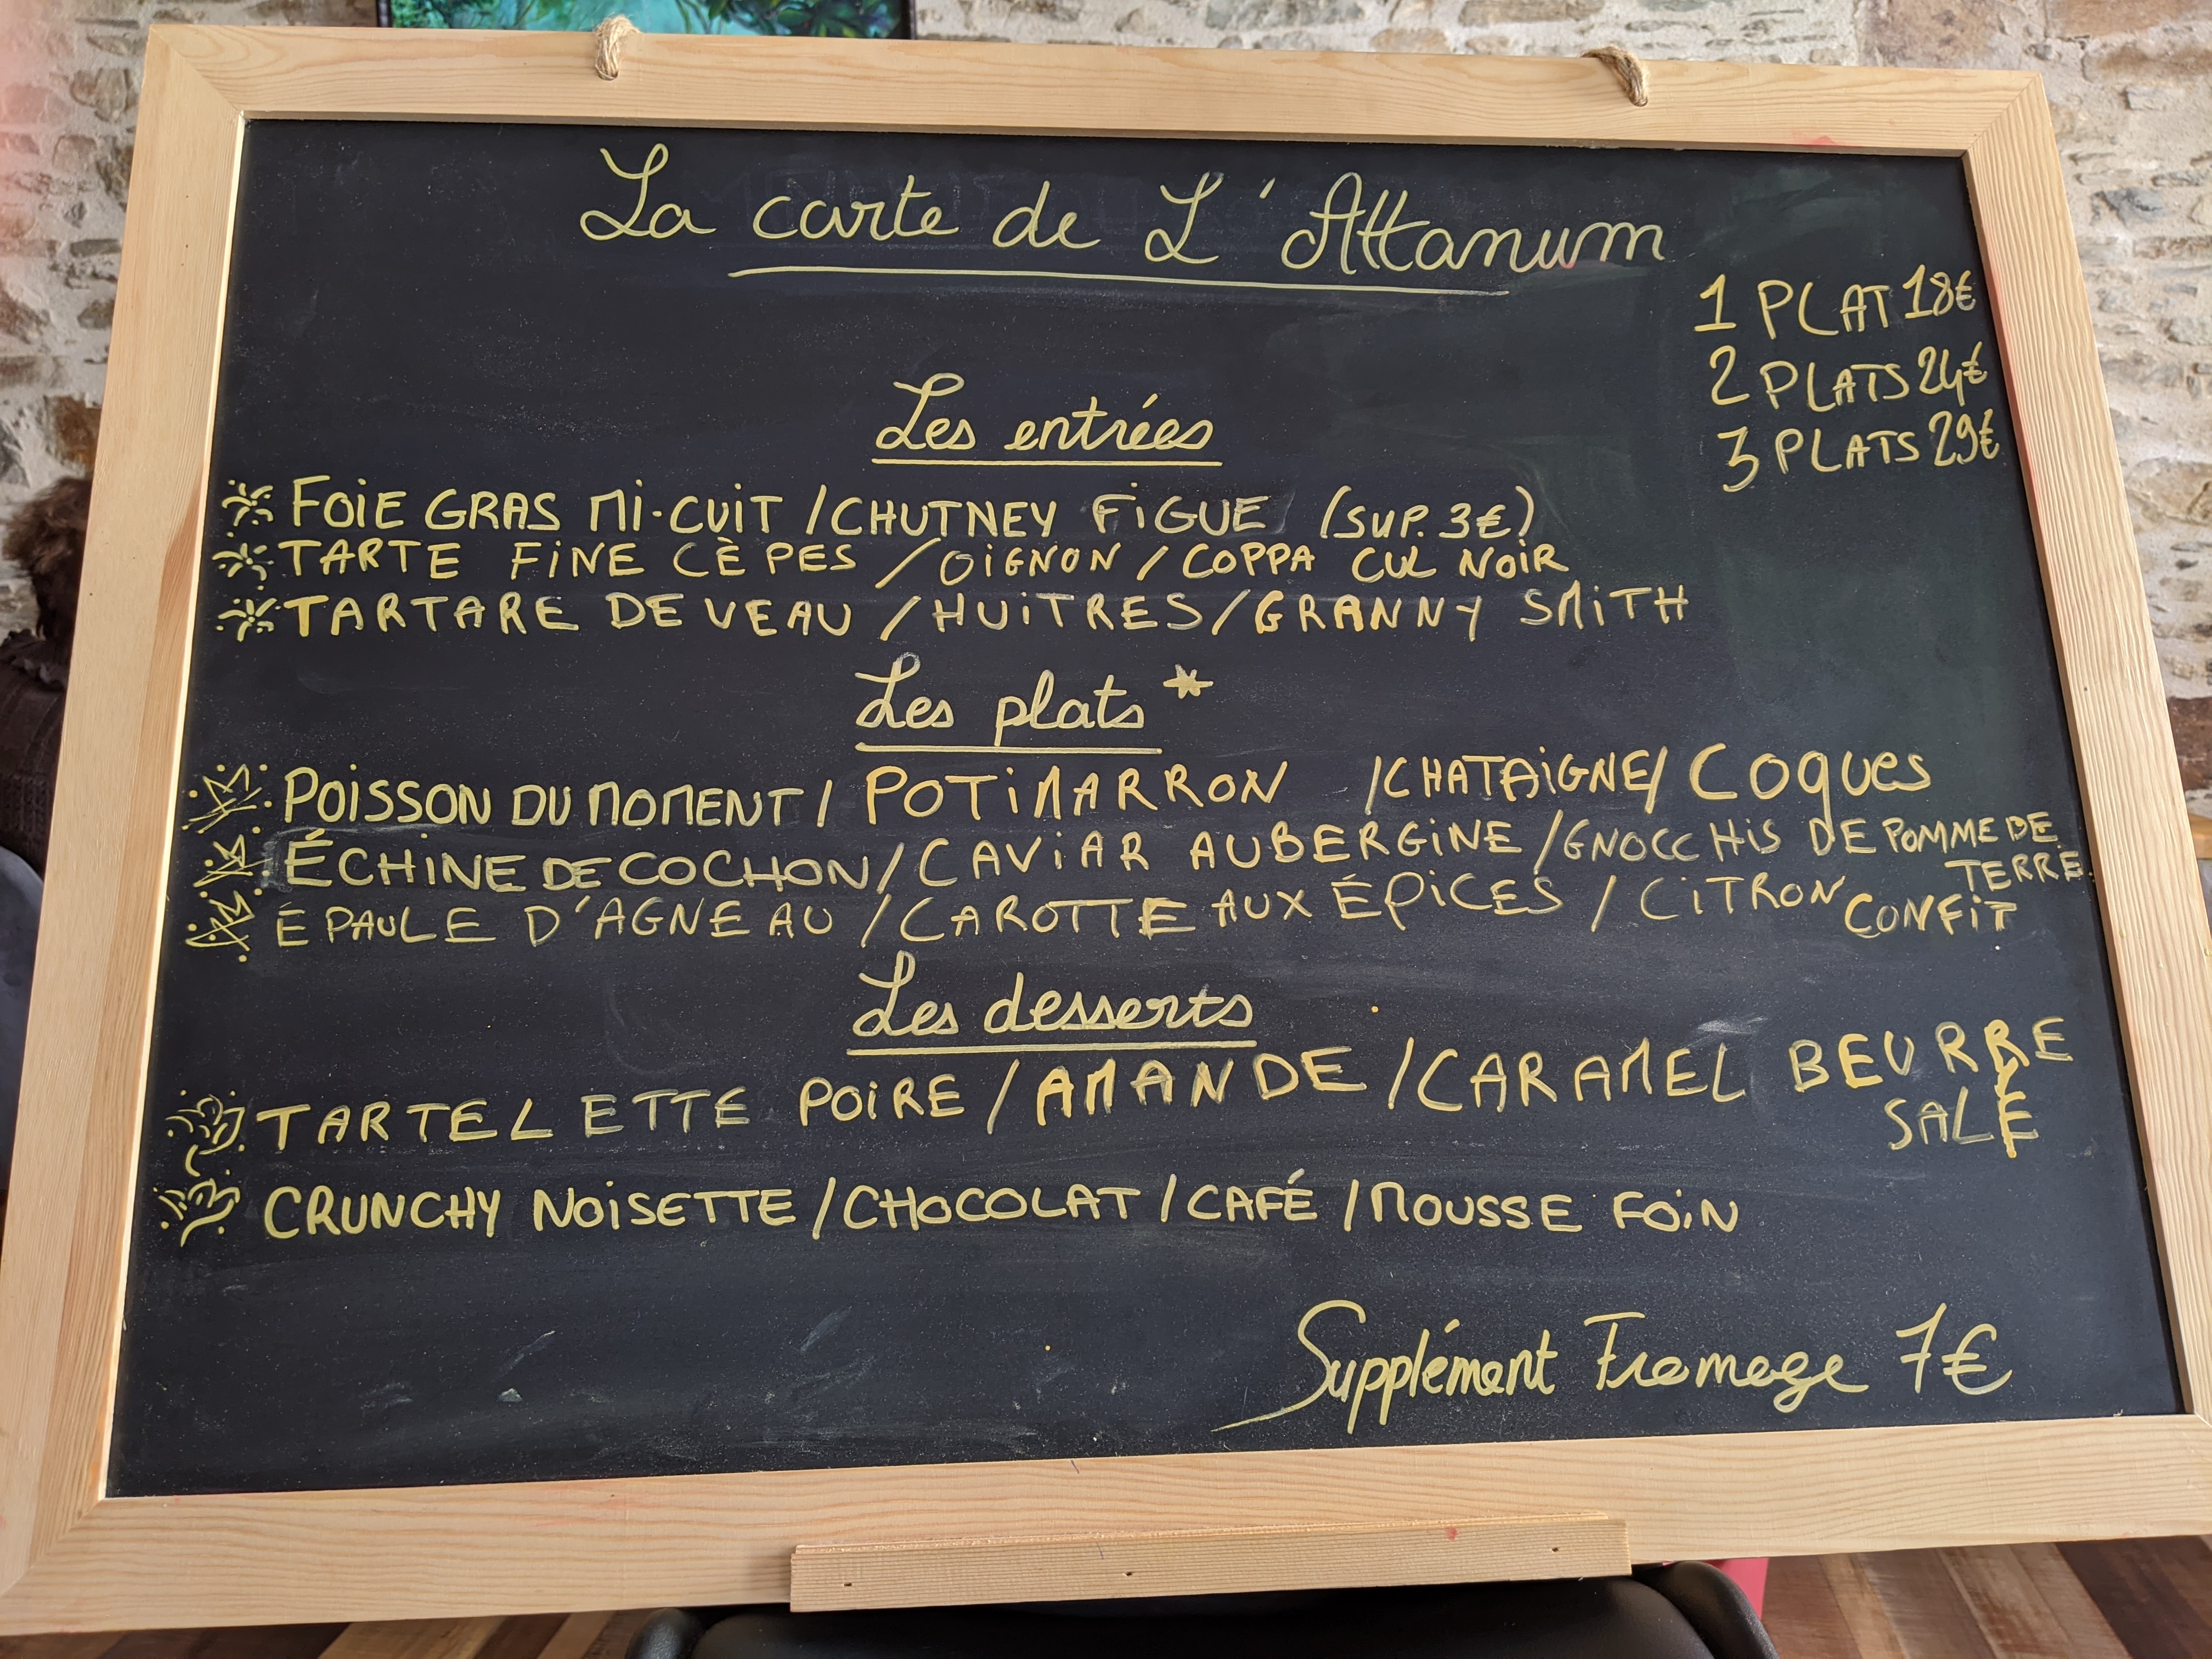 La carte de L'Attanum
1 PLAT 18€
2 PLATS 24€
3 PLATS 29€
Les entrées
FOIE GRAS MI-CUIT / CHUTNEY FIGUE (SUP. 3€)
TARTE FINE CÈPES / OIGNON / COPPA CUL NOIR
TARTARE DE VEAU / HUITRES / GRANNY SMITH
Les plats *
POISSON DU MOMENT / POTIMARRON / CHATAIGNE / Coques
ÉCHINE DE COCHON / CAVIAR AUBERGINE / GNOCCHIS DE POMME DE
TERRE
ÉPAULE D'AGNEAU / CAROTTE AUX ÉPICES / CITRON CONFIT
Les desserts
TARTELETTE POIRE / AMANDE / CARAMEL BEURRE
SALÉ
CRUNCHY NOISETTE / CHOCOLAT / CAFÉ / MOUSSE FOIN
Supplément Fromage 7€